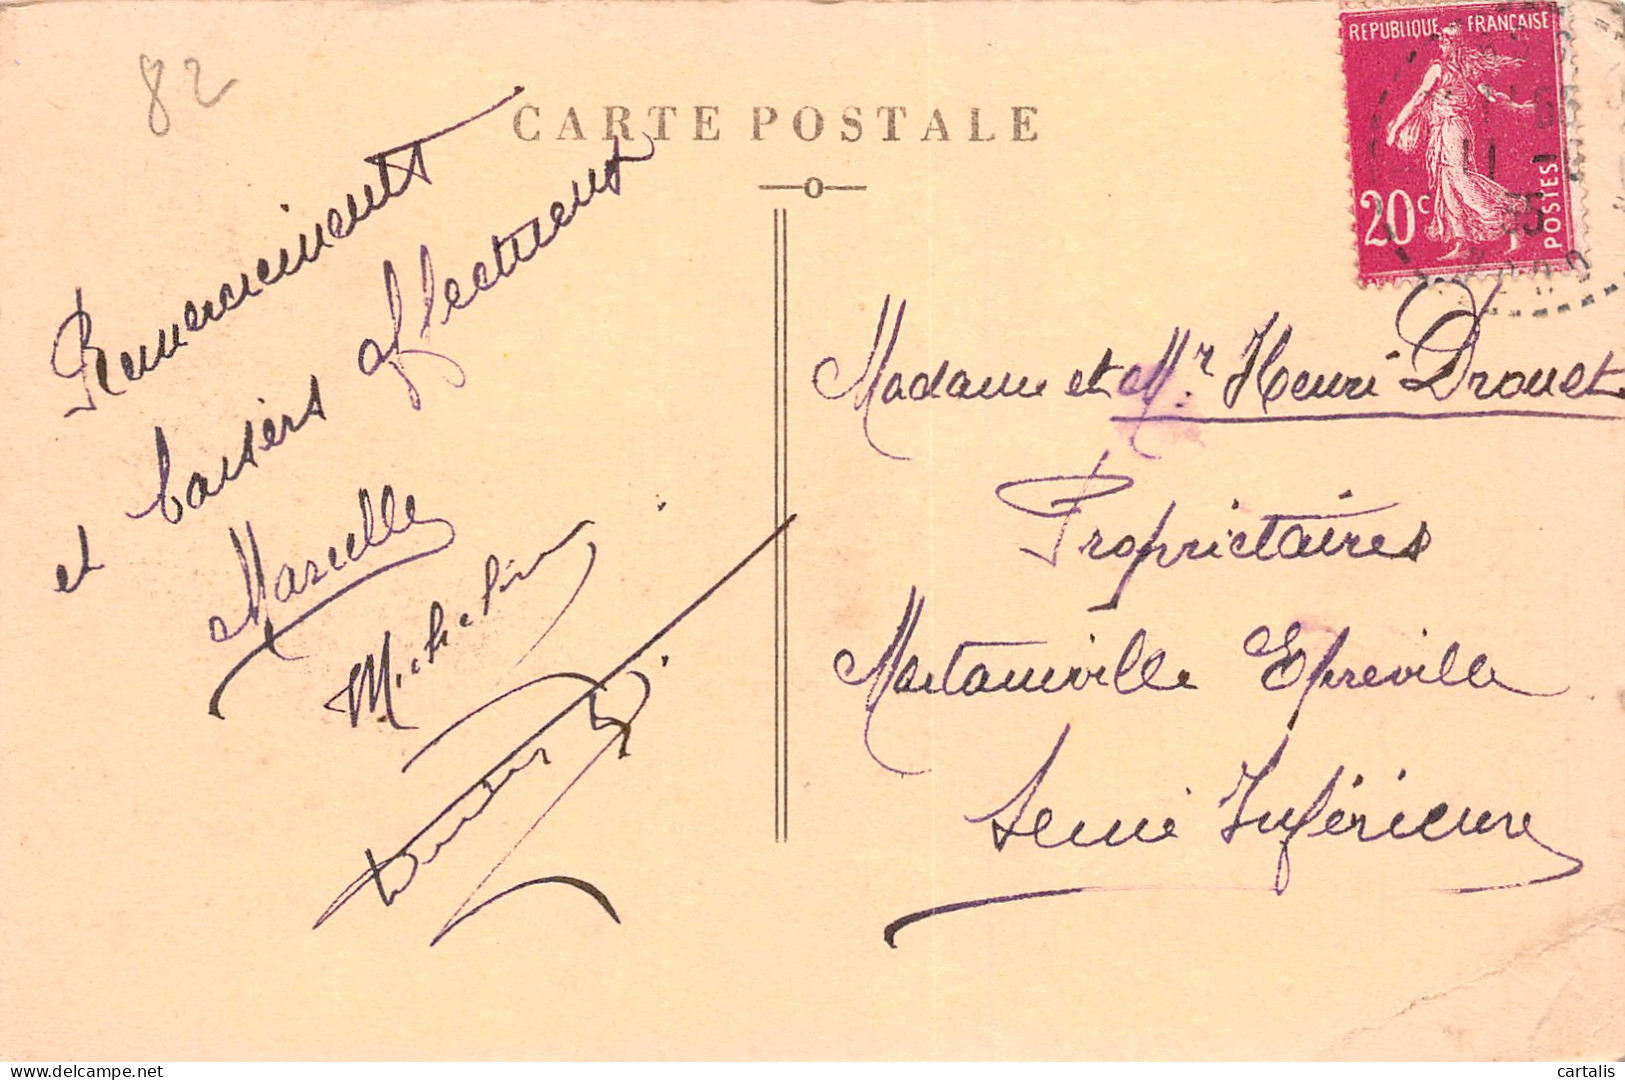 82
CARTE POSTALE
REPUBLIQUE FRANÇAISE
20c
POSTES
11
35
Remerciements
et baisers affectueux
Marcelle
Micheline
Madame et Mr. Henri Drouet
Propriétaires
Martainville Epreville
Seine Inférieure
delcampe.net
cartalis